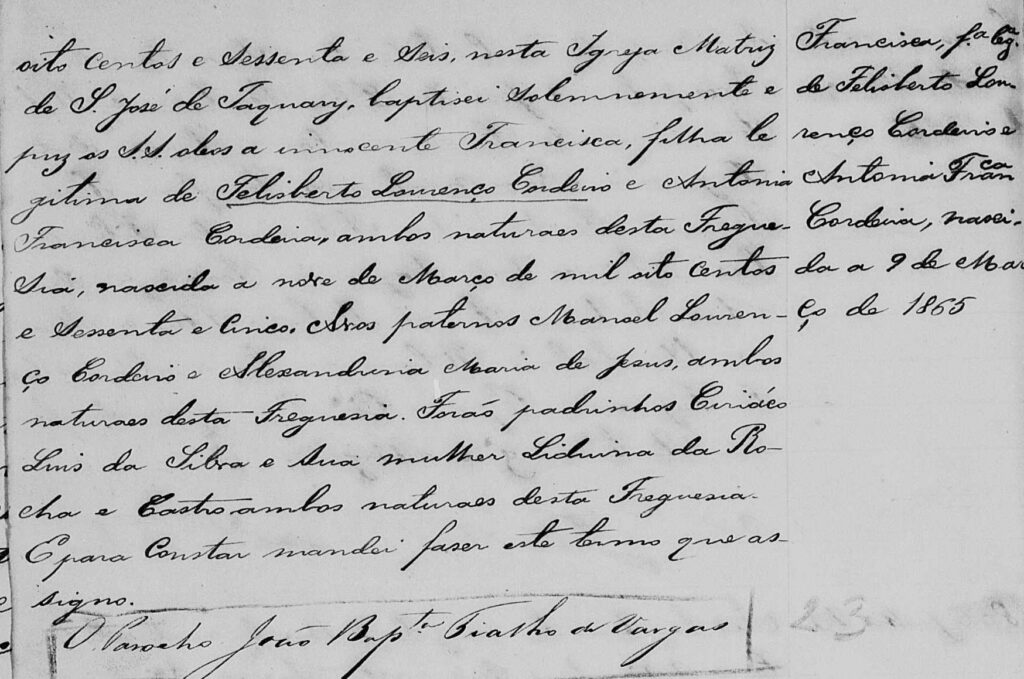 oito centos e Sessenta e Seis, nesta Igreja Matriz
de S. José de Taquary, baptisei Solemnemente e
puz os S.S. oleos a innocente Francisca, filha le
gitima de Felisberto Lourenço Cordeiro e Antonia
Francisca Cordeira, ambos naturaes desta Fregue-
Sia, nascida a nove de Março de mil oito centos
e Sessenta e Cinco. Avos paternos Manoel Louren-
ço Cordeiro e Alexandrina Maria de Jesus, ambos
naturaes desta Freguesia. Forão padrinhos Ciriáco
Luis da Silva e Sua mulher Liduina da Ro-
cha e Castro ambos naturaes desta Freguesia.
E para Constar mandei faser este termo que as-
signo.
O Parocho João Bapta. Fialho de Vargas
Francisca, fa. leg.
de Felisberto Lou-
renço Cordeiro e
Antonia Franca
Cordeira, nasci-
da a 9 de Mar
ço de 1865